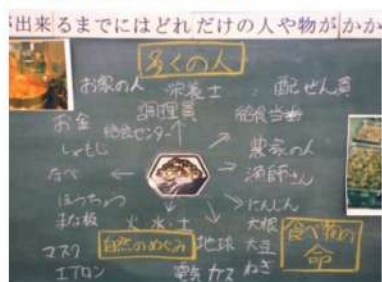 出来るまでにはどれだけの人や物がかか
多くの人
お家の人 栄養士 配ぜん員
調理員 給食当番
お金 給食センター
しゃもじ 農家の人
なべ 漁師さん
ほうちょう にんじん
まな板 火・水・土 大根
自然のめぐみ 地球 大豆
マスク ねぎ
エプロン 電気 ガス
食べ物の
命